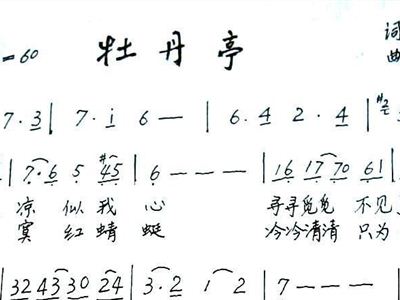 =60 牡丹亭 词
曲
7·3 | 7·i 6— | 6·4 2·4 |
7·6 5 #45 | 6 — — — | 16 17 70 61 |
凉 似 我 心 寻寻觅觅 不见
寞 红 蜻 蜓 冷冷清清 只为
32 43 30 24 | 3·2 1 2 | 7 — — —